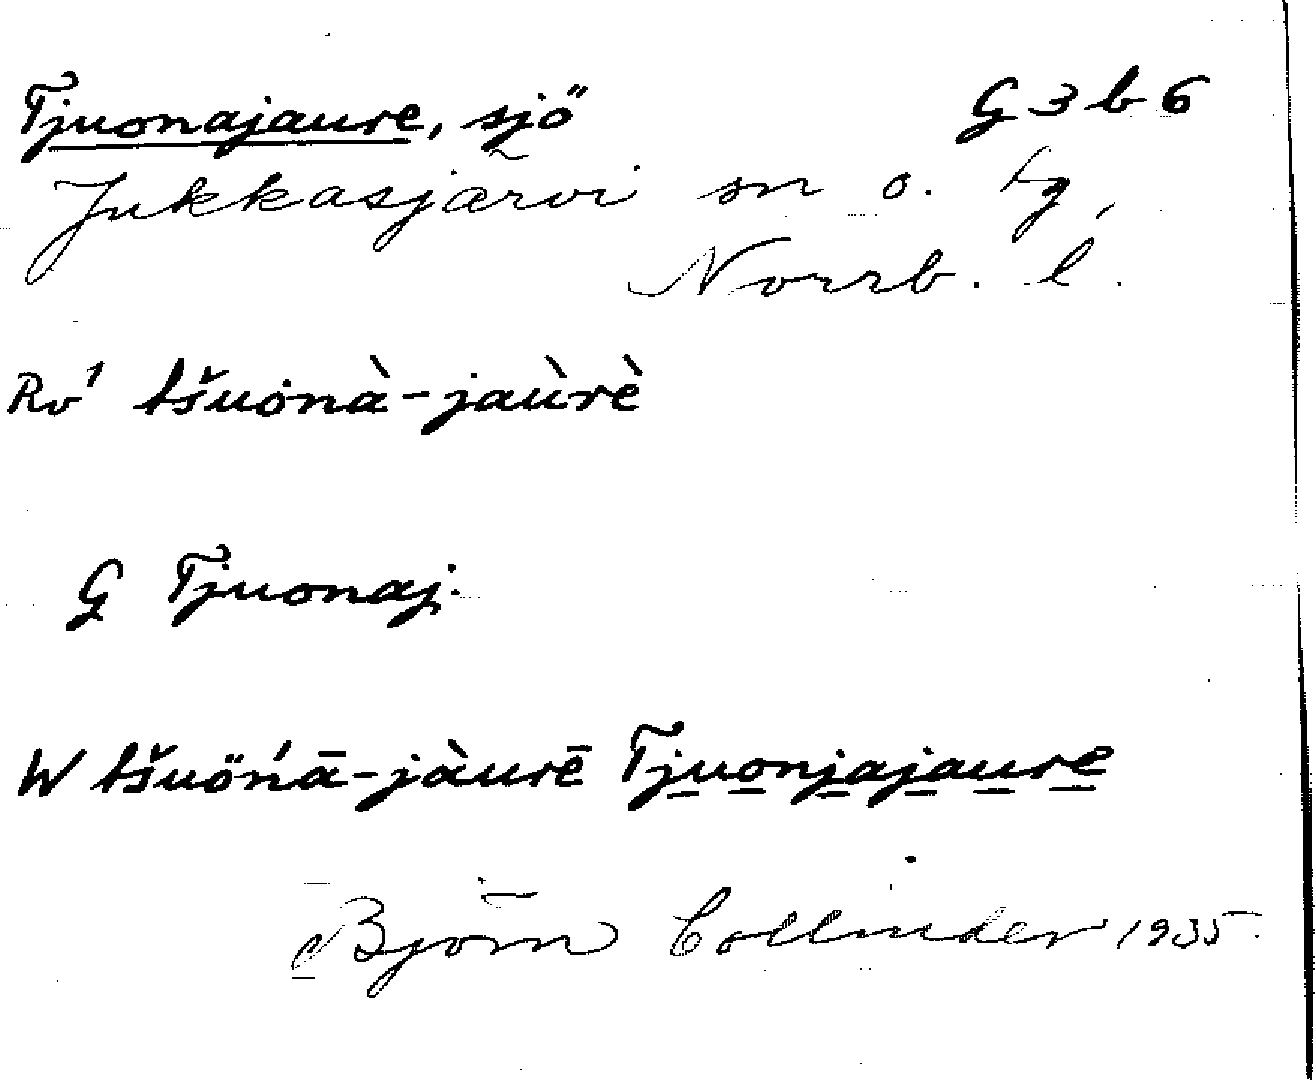 Tjuonajaure, sjö G 3 b 6
Jukkasjärvi sn o. tg,
Norrb. l.
Rv' tšuọnà-jaùrè
G Tjuonaj.
W tšuön'ā-jàurē Tjuonjajaure
Björn Collinder 1935.